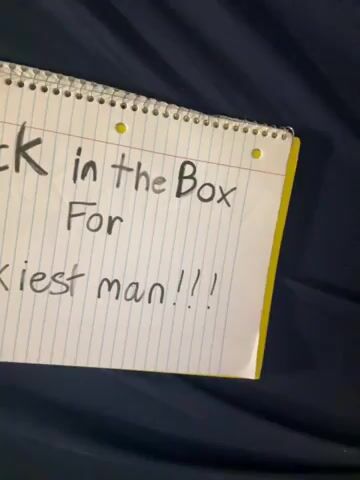 ck in the Box
For
kiest man!!!